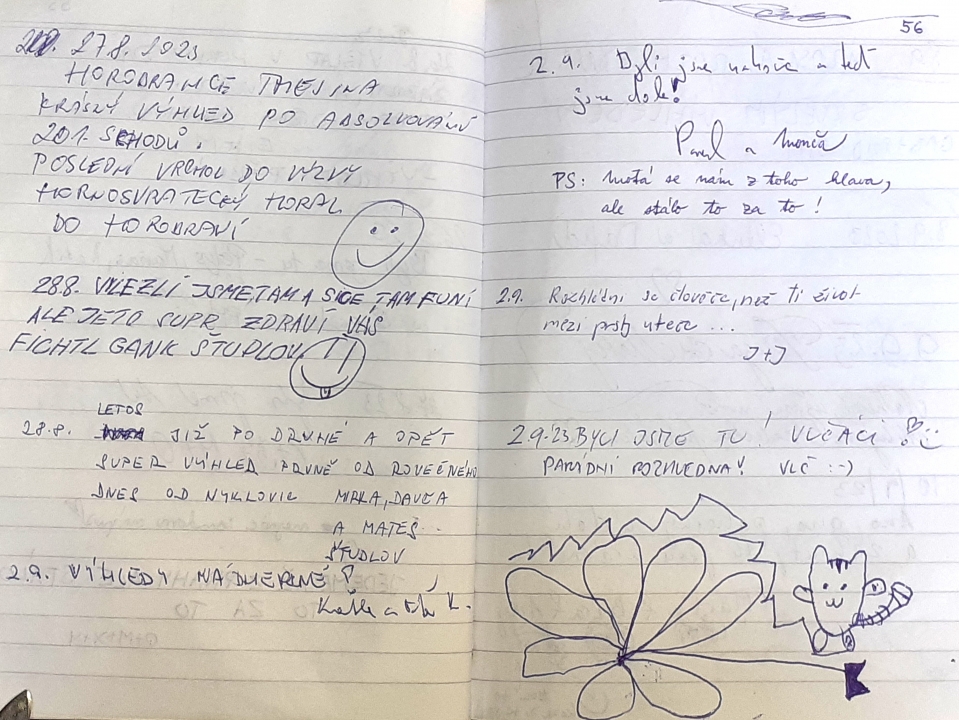 27.8. 2023
HORODRANCE
KRÁSNÝ VÝHLED PO ABSOLVOVÁNÍ
201. SCHODŮ.
POSLEDNÍ VRCHOL DO VÝZVY
HORNOSVRATECKÝ HORAL
DO HOROBRANÍ
28.8. VYLEZLI JSME TAM A SICE TAM FUNÍ
ALE JE TO SUPR ZDRAVÍ VÁS
FICHTL GANK ŠTUDLOV
LETOS
28.8. JIŽ PO DRUHÉ A OPĚT
SUPER VÝHLED PRVNĚ OD ROVEČNÉHO
DNES OD NYKLOVIC MIRKA, DAVČA
A MATEŠ
ŠTUDLOV
2.9. VÝHLEDY NÁDHERNÉ
56
2.9. Byli jsme nahoře a teď
jsme dole!
Pavel a Monča
PS: motá se nám z toho hlava,
ale stálo to za to!
2.9. Rozhlédni se človeče, než ti život
mezi prsty uteče ...
J+J
2.9.23 BYLI JSME TU! VLČÁCI
PARÁDNÍ ROZHLEDNA! VLČ :-)